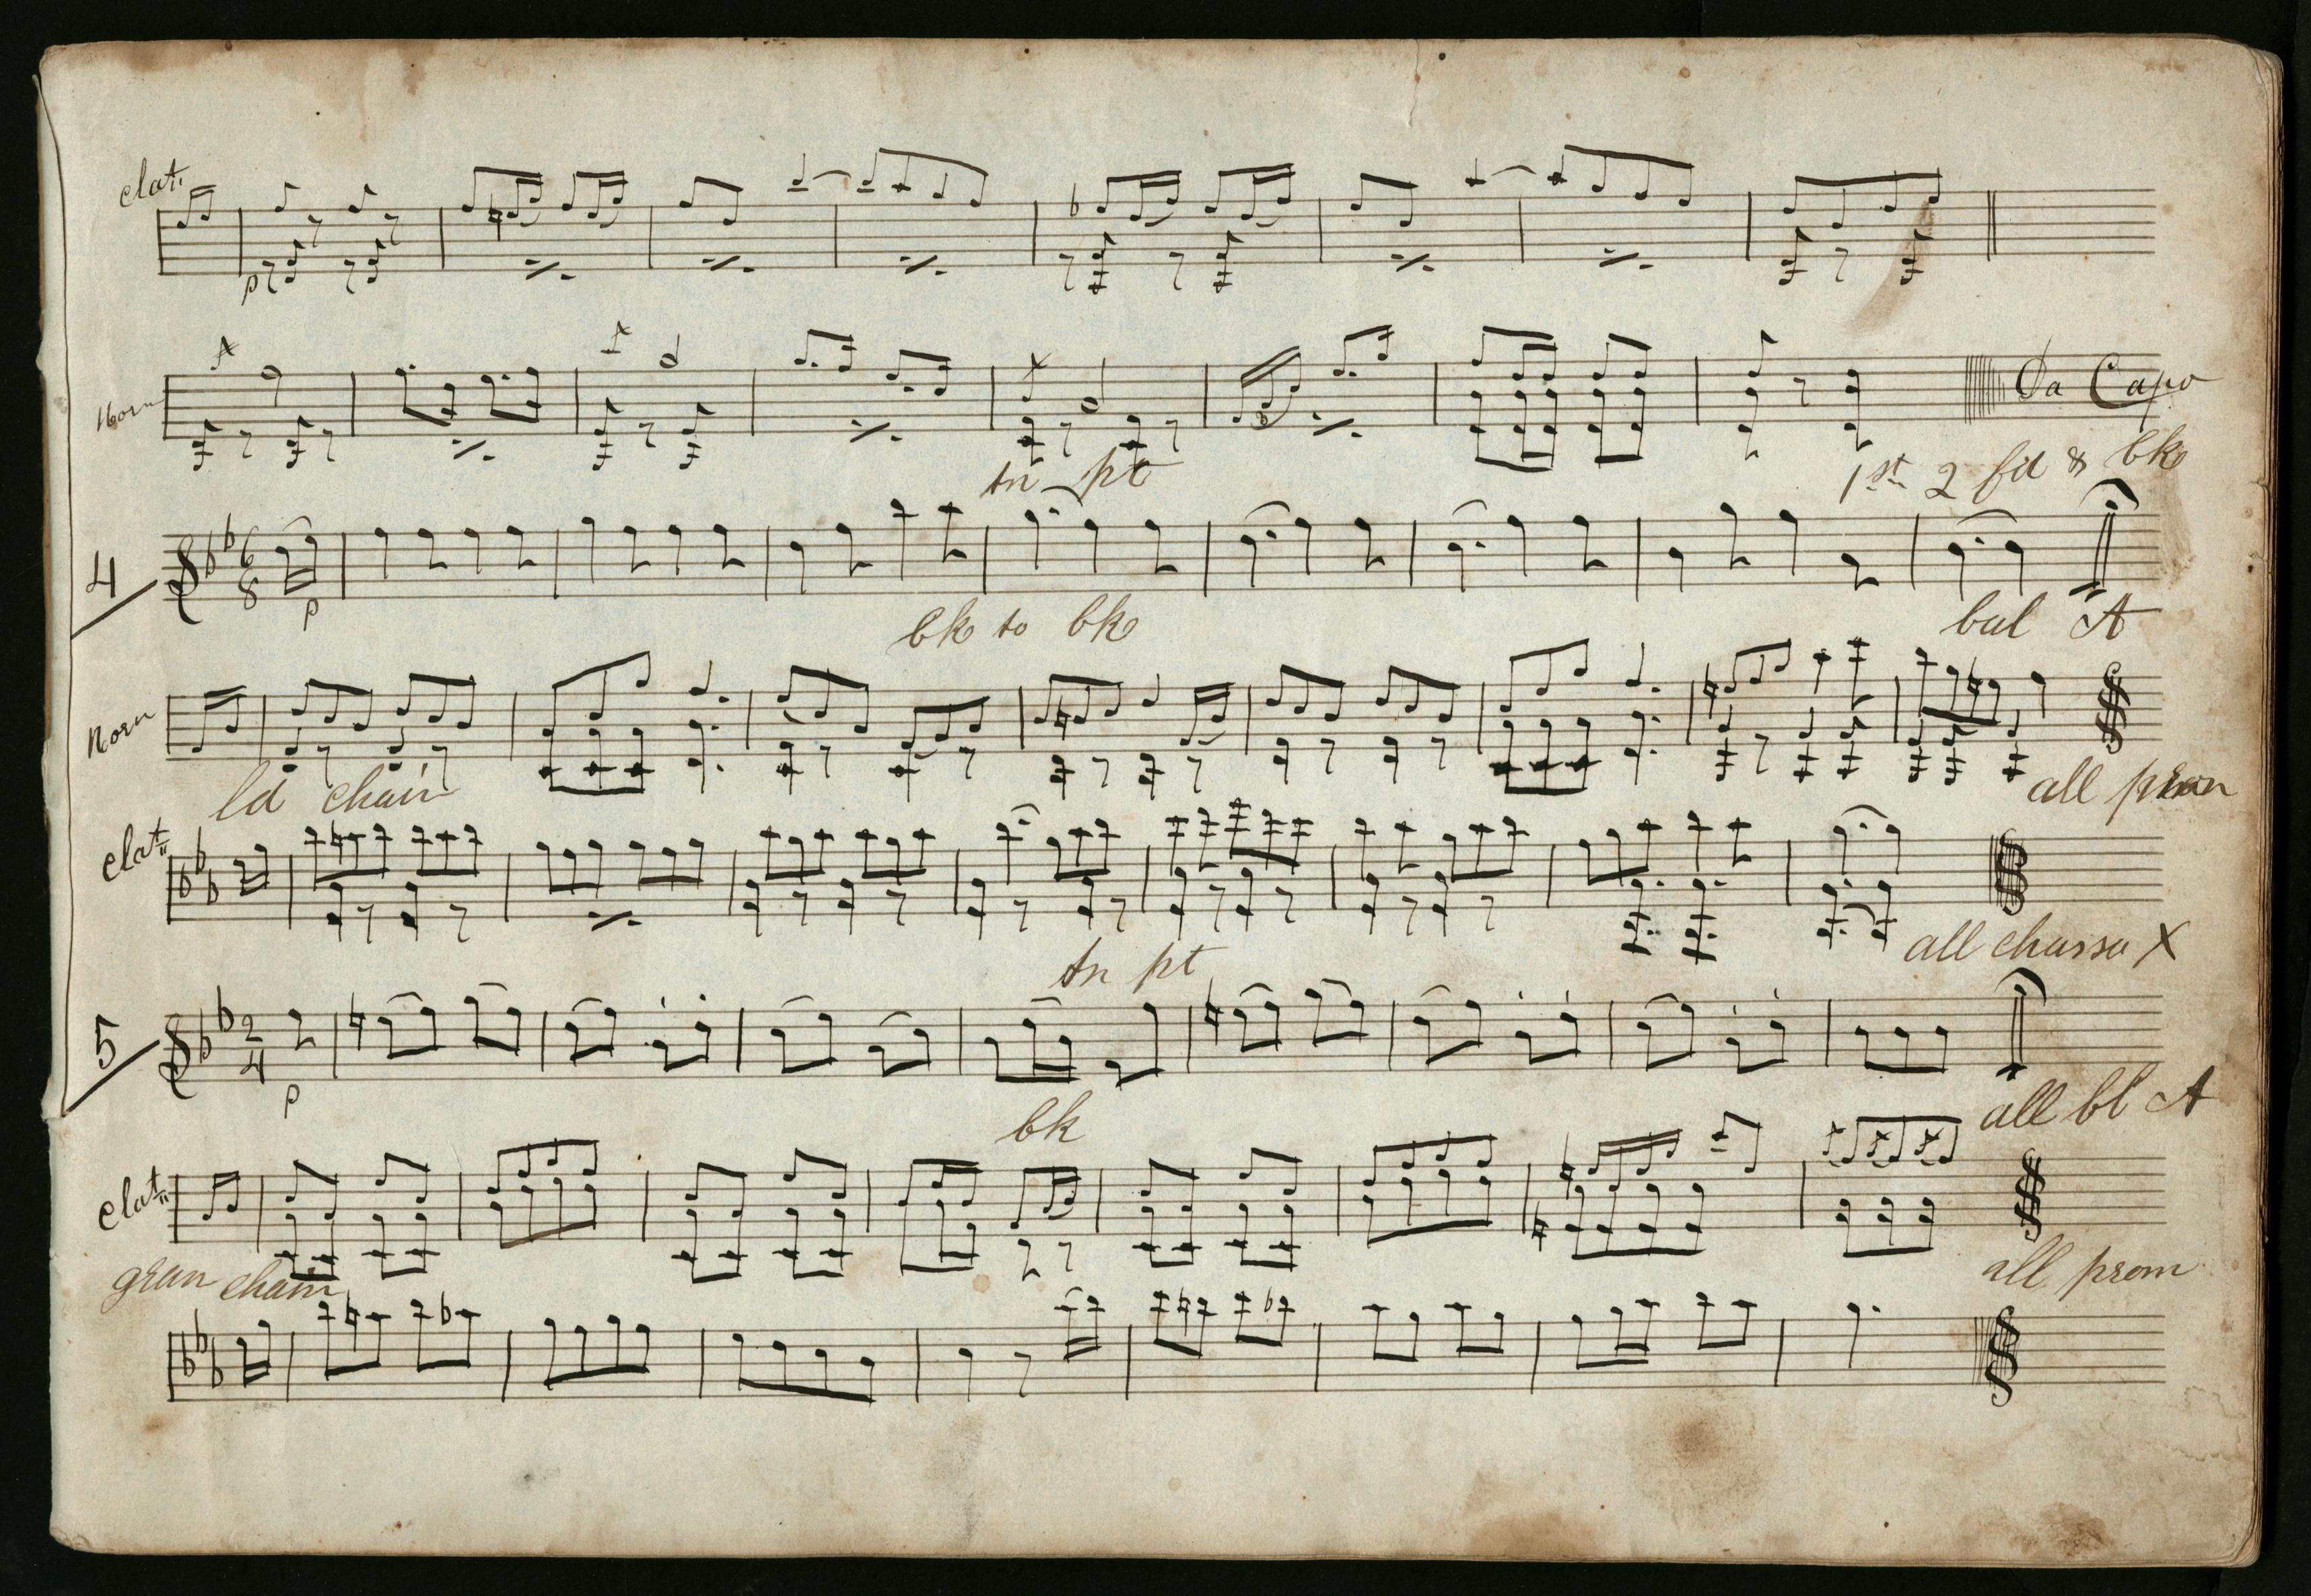 clat.
Horn
Da Capo
tn pt
1st 2 fd & bk
4 6 8
p
bk to bk
bal A
Horn
ld chain
all prom
clat.
tn pt
all chassa X
5 2 4
p
bk
all bl A
Clat.
gran chain
all prom